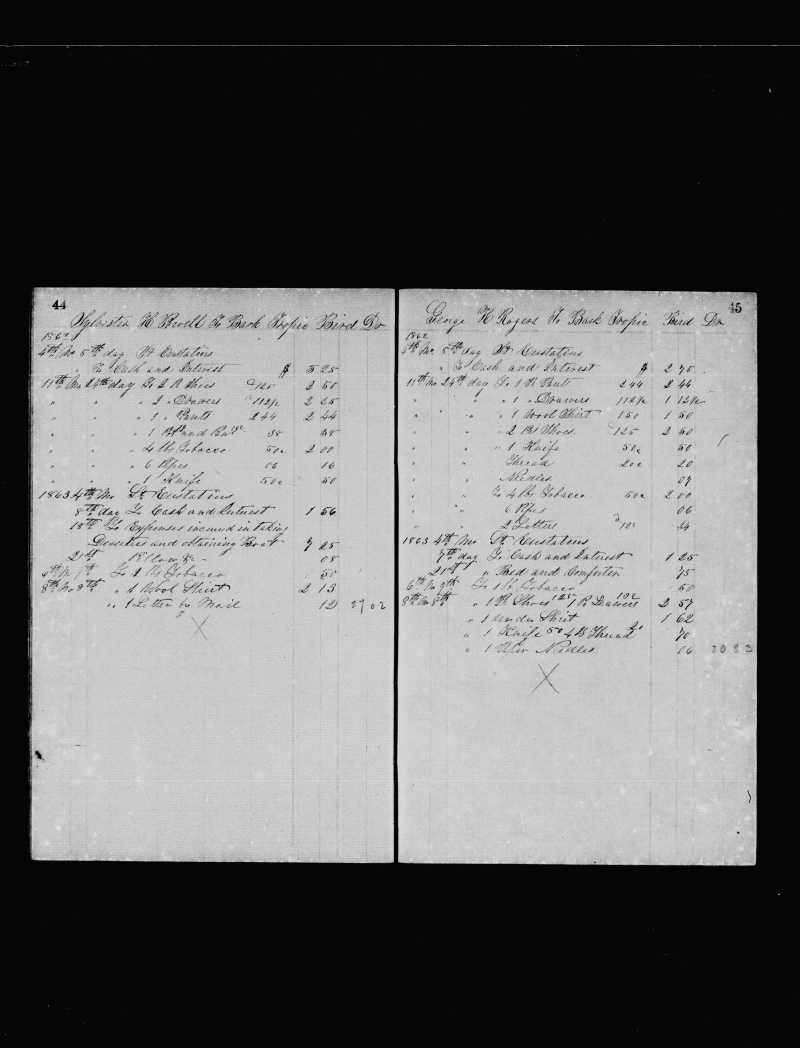 44
Sylvester H Revell To Bark Tropic Bird Dr
1862
4th Mo 5th day St Eustatius
" To Cash and Interest $ 5 25
11th Mo 24th day To 2 P Shoes 125 2 50
" " " 2 " Drawers 112½ 2 25
" " " 1 " Pants 244 2 44
" " " 1 and 38 38
" " " 4 lbs Tobacco 50c 2 00
" " " 6 Pipes 06 16
" " " 1 Knife 50c 50
1863 4th Mo St Eustatius
8th day To Cash and Interest 1 56
18th To Expenses incurred in taking
Deserters and obtaining Boat 7 25
21st Pillow &c 08
6th Mo 9th To 1 lb Tobacco 50
8th Mo 8th " 1 Wool Shirt 2 13
" 1 Letter by Mail 12 27 02
X
45
George H Rogers To Bark Tropic Bird Dr
1862
4th Mo 5th day St Eustatius
" To Cash and Interest $ 2 75
11th Mo 24th day To 1 P Pants 244 2 44
" " " 1 " Drawers 112½ 1 12½
" " " 1 Wool Shirt 150 1 50
" " " 2 Pr Shoes 125 2 50
" " " 1 Knife 50c 50
" " Thread 20c 20
" " Needles 09
" " To 4 lbs Tobacco 50c 2 00
" " 6 Pipes 06
" " 2 Letters 10c 24
1863 4th Mo St Eustatius
7th day To Cash and Interest 1 25
21st " Bed and Comforter 75
6th Mo 9th To 1 lb Tobacco 50
8th Mo 8th " 1 P Shoes 125 1 P Drawers 132 2 57
" 1 Under Shirt 1 62
" 1 Knife 50 Thread 70
" 1 Paper Needles 06 20 83
X